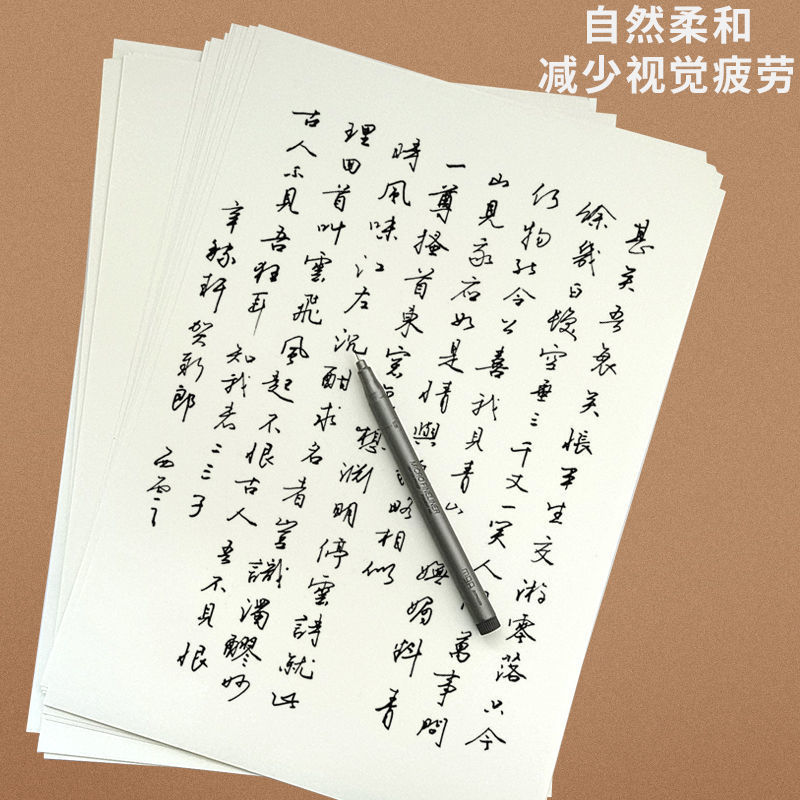 自然柔和
减少视觉疲劳
甚矣吾衰矣悵平生交游零落只今
餘幾白髮空垂三千丈一笑人萬事問
何物能令公喜我見青山嫵媚料青
山見我應如是情與略相似
一尊搔首東窗想淵明停雲詩就此
時風味江左沉酣求名者豈識濁醪妙
理回首叫雲飛風起不恨古人吾不見恨
古人不見吾狂耳知我者二三子
辛稼軒贺新郎